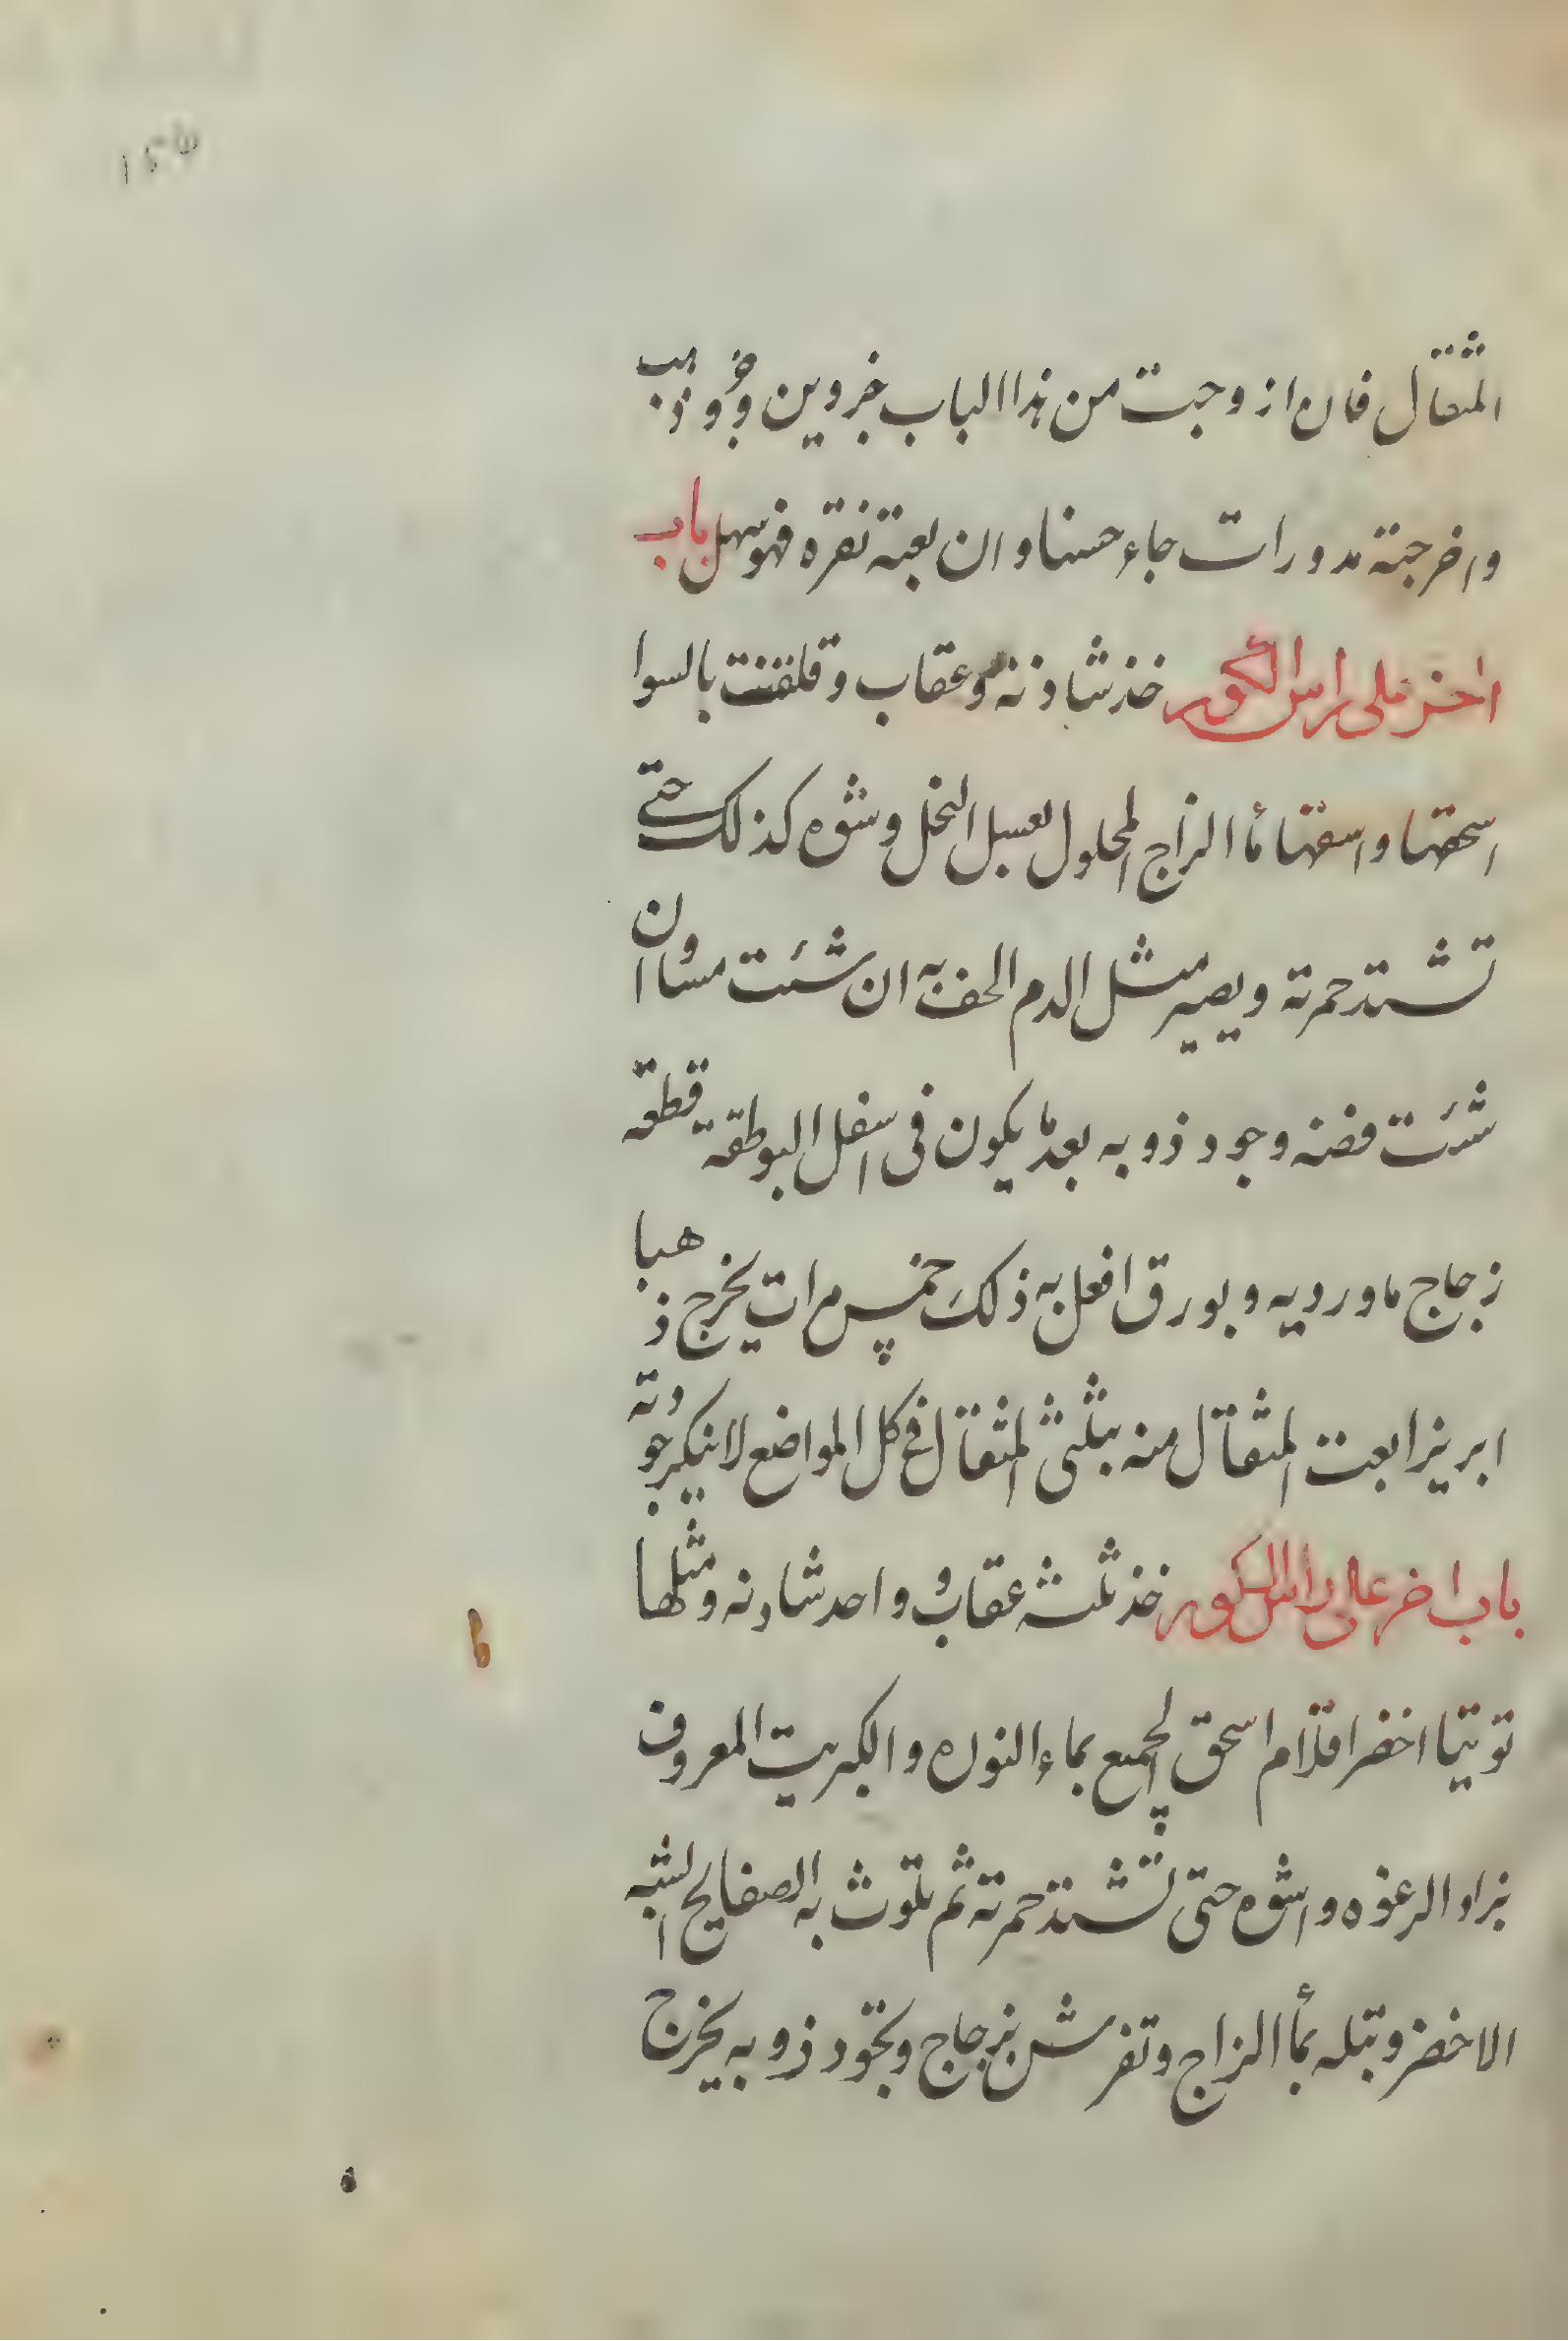 المثقال فان ازوجبت من هذا الباب جزوين وجزو ذهب
واخرجته مدورات جاء حسنا وان بعته نقره فهو سهل باب
اخر على راس الكور خذ شاذنه وعقاب وقلقنت بالسوا
اسحقها واسقها مأ الزاج المحلول بعسل النحل وشوه كذلك حتى
تشتد حمرته ويصير مثل الدم الحف به ان شئت مسا وان
شئت فضه وجود ذوبه بعد ما يكون فى اسفل البوطقة قطعة
زجاج ماورديه وبورق افعل به ذلك خمس مرات يخرج ذهبا
ابريزا بعت المثقال منه بثلثى المثقال فى كل المواضع لا ينكر جودته
باب اخر على راس الكور خذ ثلثه عقاب وواحد شادنه ومثلها
توتيا اخضر اقلام اسحق الجميع بماء النوره والكبريت المعروف
بزاو الرغوه واشوه حتى تشتد حمرته ثم تلوث به الصفايح الشبه
الاخضر وتبله بمأ الزاج وتفرش بزجاج وتجود ذوبه يخرج